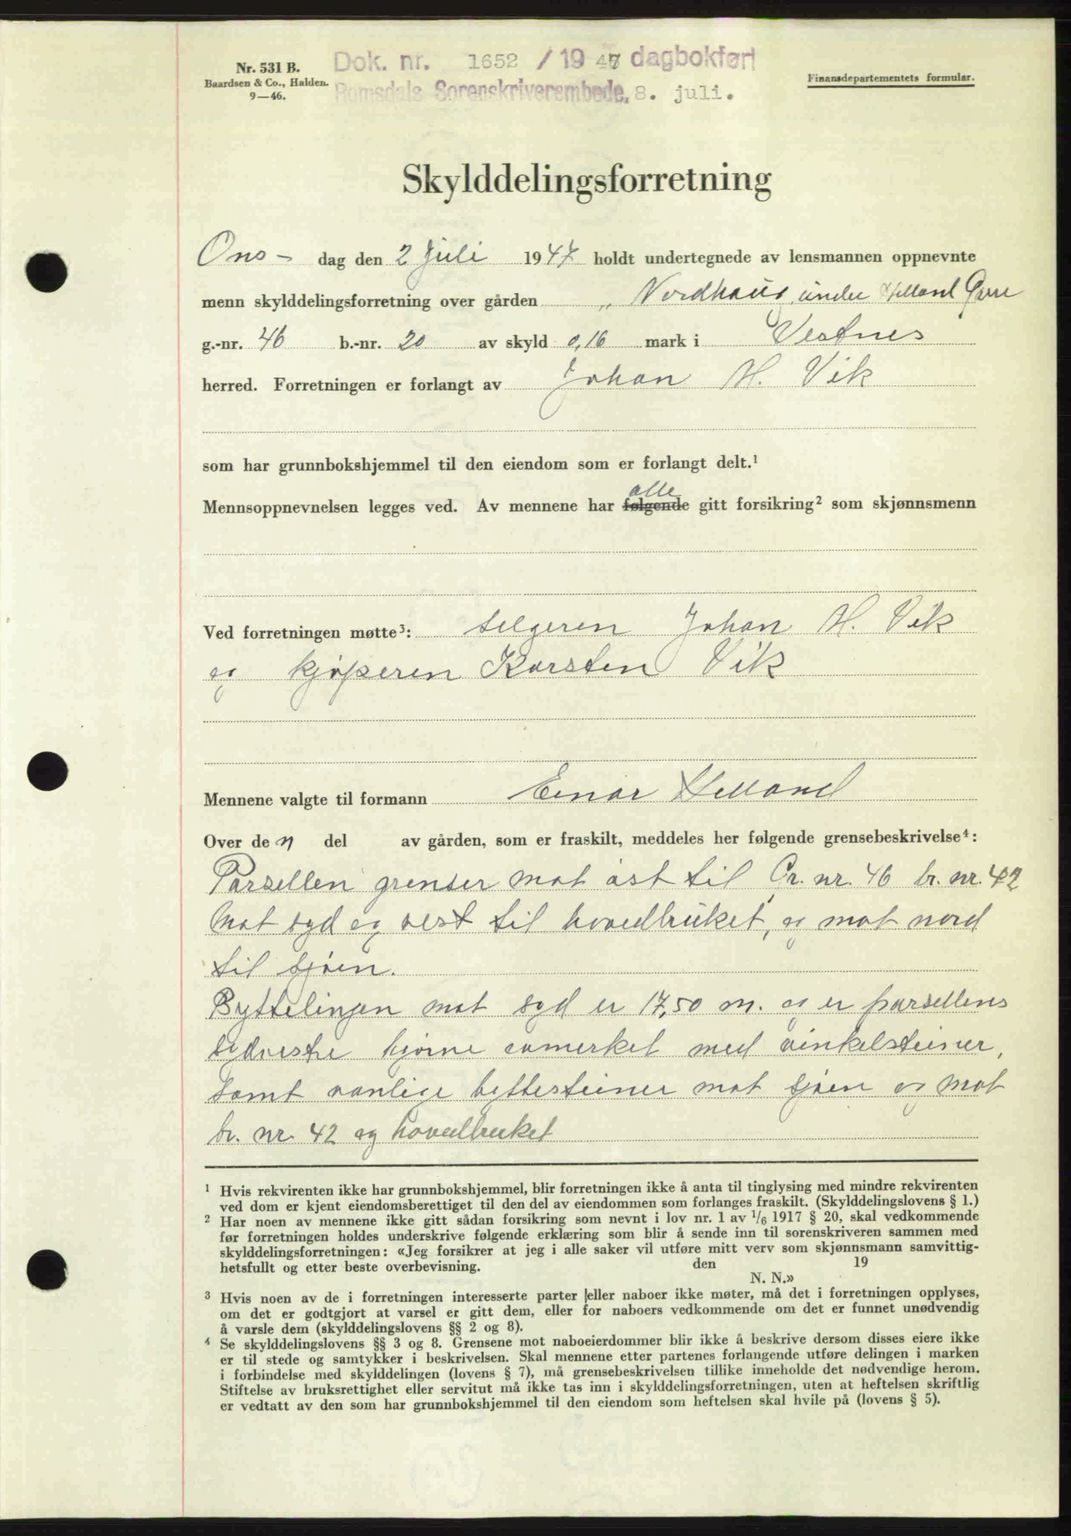 Nr. 531 B.
Baardsen & Co., Halden.
9—46.
Dok. nr. 1652 / 19 47 dagbokført
Romsdals Sorenskriverembede, 8. juli.
Finansdepartementets formular.
Skylddelingsforretning
Ons- dag den 2 Juli 1947 holdt undertegnede av lensmannen oppnevnte
menn skylddelingsforretning over gården „ Nordhaus under Helland
g.-nr. 46 b.-nr. 20 av skyld 0,16 mark i Vestnes
herred. Forretningen er forlangt av Johan H. Vik
som har grunnbokshjemmel til den eiendom som er forlangt delt.¹
alle
Mennsoppnevnelsen legges ved. Av mennene har følgende gitt forsikring² som skjønnsmenn
Ved forretningen møtte³: selgeren Johan H. Vik
og kjøperen Karsten Vik
Mennene valgte til formann Einar Helland
Over den del av gården, som er fraskilt, meddeles her følgende grensebeskrivelse⁴:
Parsellen grenser mot øst til Gr. nr. 46 br. nr. 42
Mot syd og vest til hovedbruket, og mot nord
til sjøen.
Byttelinjen mot syd er 17,50 m. og er parsellens
sydvestre hjørne avmerket med vinkelsteiner,
samt vanlige byttesteiner mot sjøen og mot
br. nr. 42 og hovedbruket
¹ Hvis rekvirenten ikke har grunnbokshjemmel, blir forretningen ikke å anta til tinglysing med mindre rekvirenten
ved dom er kjent eiendomsberettiget til den del av eiendommen som forlanges fraskilt. (Skylddelingslovens § 1.)
² Har noen av mennene ikke gitt sådan forsikring som nevnt i lov nr. 1 av ¹/₆ 1917 § 20, skal vedkommende
før forretningen holdes underskrive følgende erklæring som blir å sende inn til sorenskriveren sammen med
skylddelingsforretningen: «Jeg forsikrer at jeg i alle saker vil utføre mitt verv som skjønnsmann samvittig-
hetsfullt og etter beste overbevisning. den 19
N. N.»
³ Hvis noen av de i forretningen interesserte parter eller naboer ikke møter, må det i forretningen opplyses,
om det er godtgjort at varsel er gitt dem, eller for naboers vedkommende om det er funnet unødvendig
å varsle dem (skylddelingslovens §§ 2 og 8).
⁴ Se skylddelingslovens §§ 3 og 8. Grensene mot naboeierdommer blir ikke å beskrive dersom disses eiere ikke
er til stede og samtykker i beskrivelsen. Skal mennene etter partenes forlangende utføre delingen i marken
i forbindelse med skylddelingen (lovens § 7), må grensebeskrivelsen tillike inneholde det nødvendige herom.
Stiftelse av bruksrettighet eller servitut må ikke tas inn i skylddelingsforretningen, uten at heftelsen skriftlig
er vedtatt av den som har grunnbokshjemmel til den eiendom som heftelsen skal hvile på (lovens § 5).